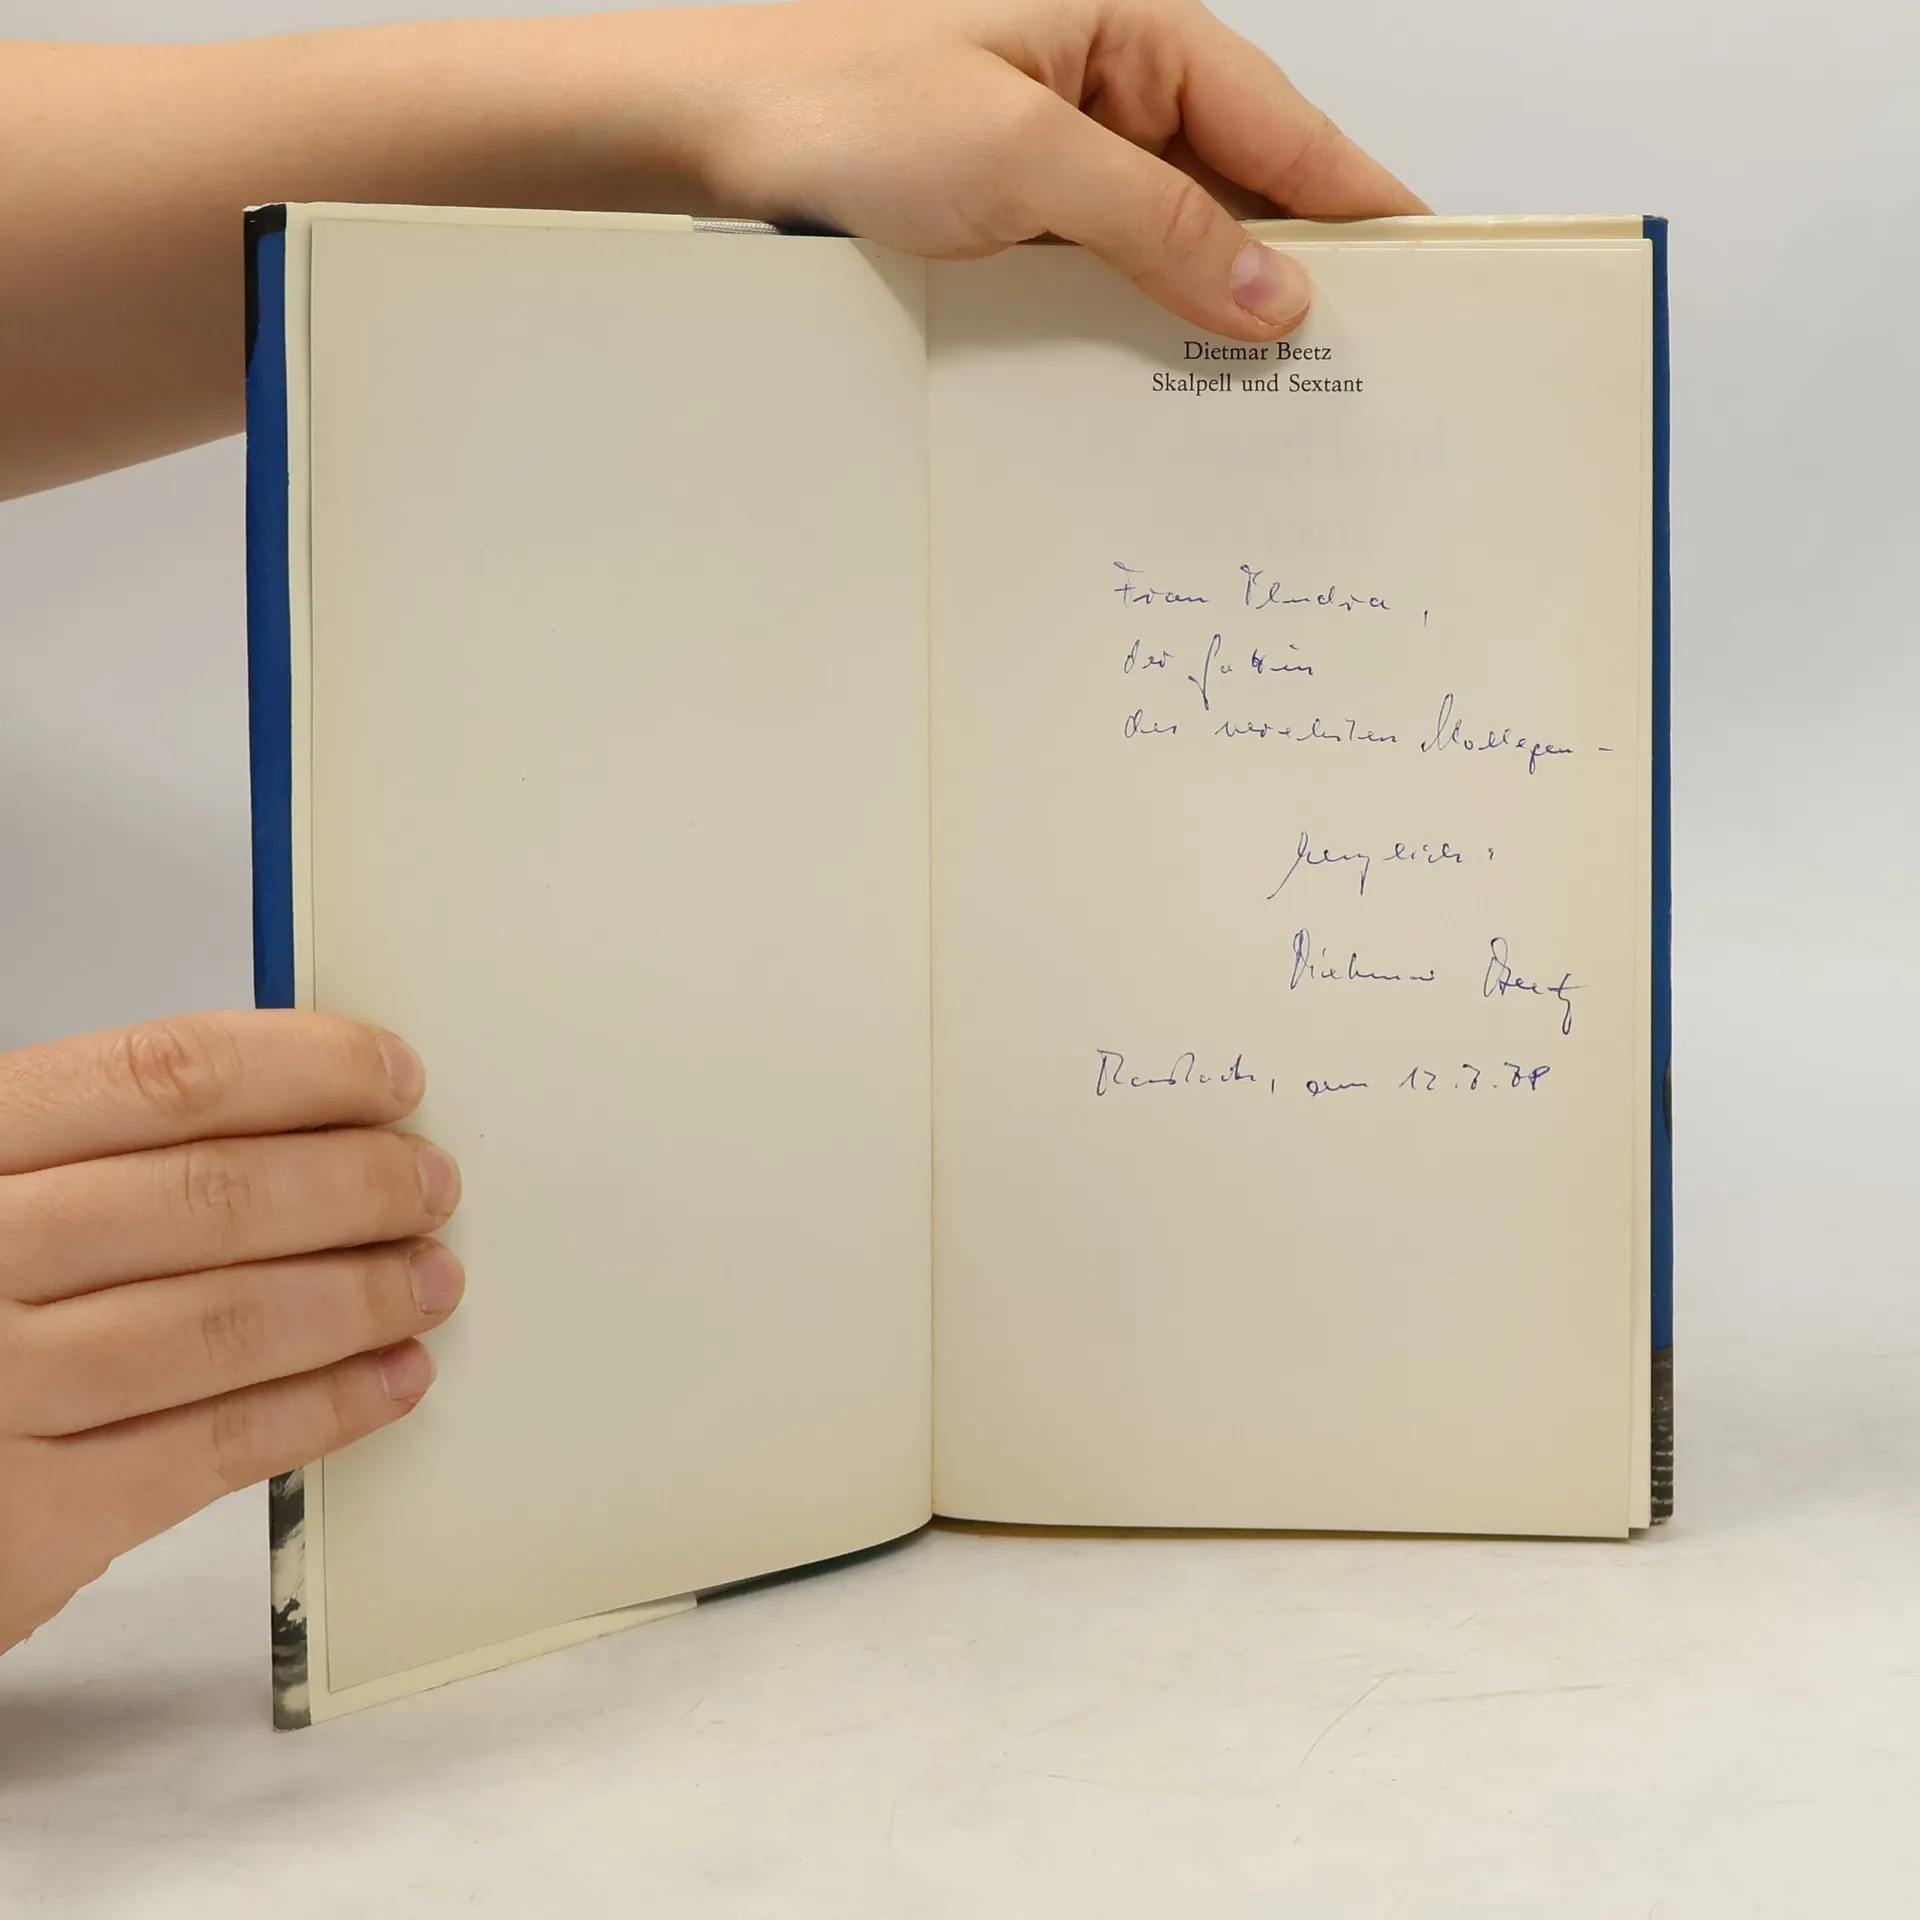 Dietmar Beetz
Skalpell und Sextant
Frau Pludra,
der Gattin
des verehrten Kollegen -
herzlich:
Dietmar Beetz
Rostock, am 12.7.78